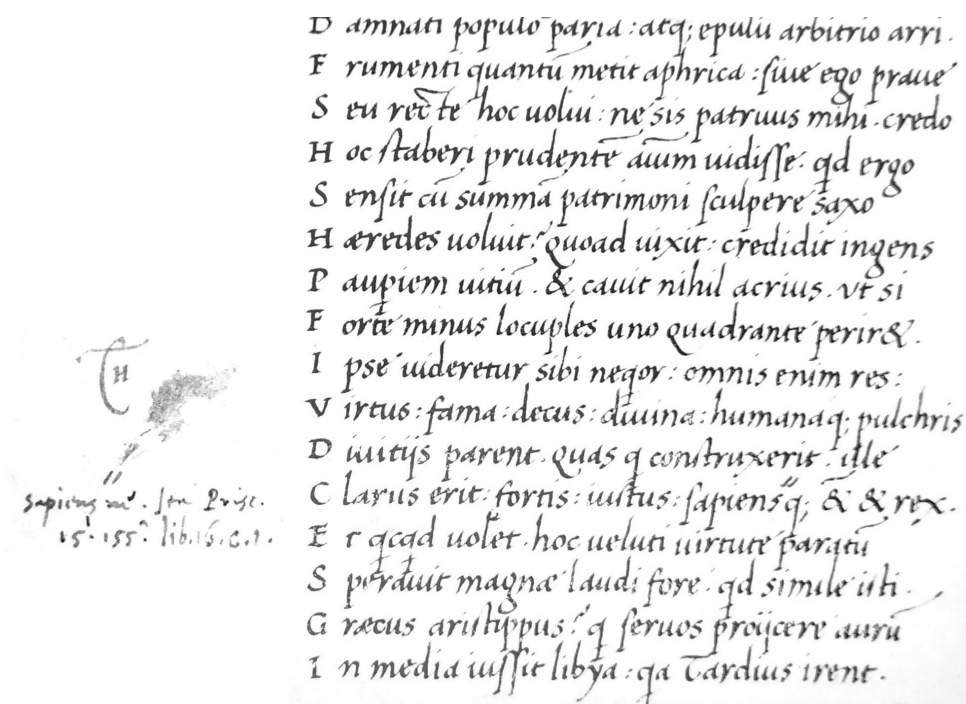 D amnati populo paria : atq; epulū arbitrio arri .
F rumenti quantū metit aphrica : siue ego praue
S eu recte hoc uolui : ne sis patruus mihi . credo
H oc staberi prudentē aīum uidisse . qd ergo
S ensit cū summā patrimoni sculpere saxo
H æredes uoluit? quoad uixit : credidit ingens
P aupiem uitiū . & cauit nihil acrius . vt si
F orte minus locuples uno quadrante perir& .
I pse uideretur sibi neqor : omnis enim res :
V irtus : fama : decus : diuina : humanaq; pulchris
D iuitijs parent . quas q construxerit . ille
C larus erit : fortis : iustus : sapiens''q; & & rex .
E t qcqd uolet . hoc ueluti uirtute paratū
S perauit magnæ laudi fore . qd simile isti .
G ræcus aristippus? q seruos proijcere aurū
I n media iussit libya : qa Tardius irent .
H
sapiens
lib. 16. c. 1.